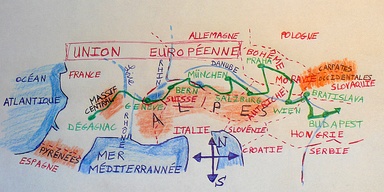 ALLEMAGNE
POLOGNE
UNION EUROPÉENNE
BOHÊME
OCÉAN
ATLANTIQUE
FRANCE
RHIN
DANUBE
PRAHA
MORAVIE
CARPATES
OCCIDENTALES
SLOVAQUIE
MÜNCHEN
BERN
SUISSE
SALZBURG
BRATISLAVA
MASSIF
CENTRAL
GENÈVE
ALPES
WIEN
BUDAPEST
DÉGAGNAC
RHONE
HONGRIE
ITALIE
SLOVÉNIE
PYRÉNÉES
ESPAGNE
MER
MÉDITERRANNÉE
N
S
CROATIE
SERBIE